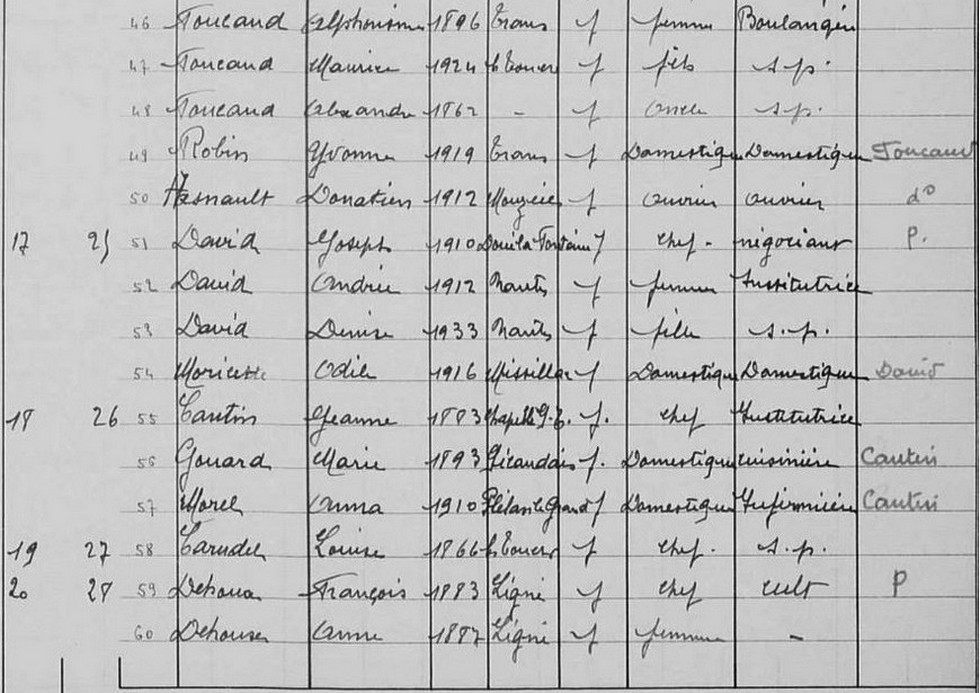 46 Foucaud Alphonsine 1896 Trans f femme Boulangère
47 Foucaud Maurice 1924 f fils s.p.
48 Foucaud Alexandre 1862 - f oncle s.p.
49 Robin Yvonne 1919 Trans f Domestique Domestique Foucaud
50 Hesnault Donatien 1912 Mouzeil f ouvrier ouvrier d°
17 25 51 David Joseph 1910 Doué la Fontaine f chef négociant P.
52 David Andrée 1912 Nantes f femme Institutrice
53 David Denise 1933 Nantes f fille s.p.
54 Odile 1916 Missillac f Domestique Domestique David
18 26 55 Cantin Jeanne 1883 Chapelle G. f. chef Institutrice
56 Gouard Marie 1893 f. Domestique cuisinière Cantin
57 Morel Anna 1910 Plélan le Grand f Domestique Infirmière Cantin
19 27 58 Louise 1866 f chef. s.p.
20 28 59 François 1883 Ligné f chef cult P
60 Anne 1887 Ligné f femme -